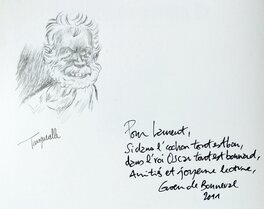 Pour Laurent,
Si dans l'cochon tout est bon,
dans l'roi Oscar tout est bonnard,
Amitiés et joyeuse lecture,
Gwen de Bonneval
2011